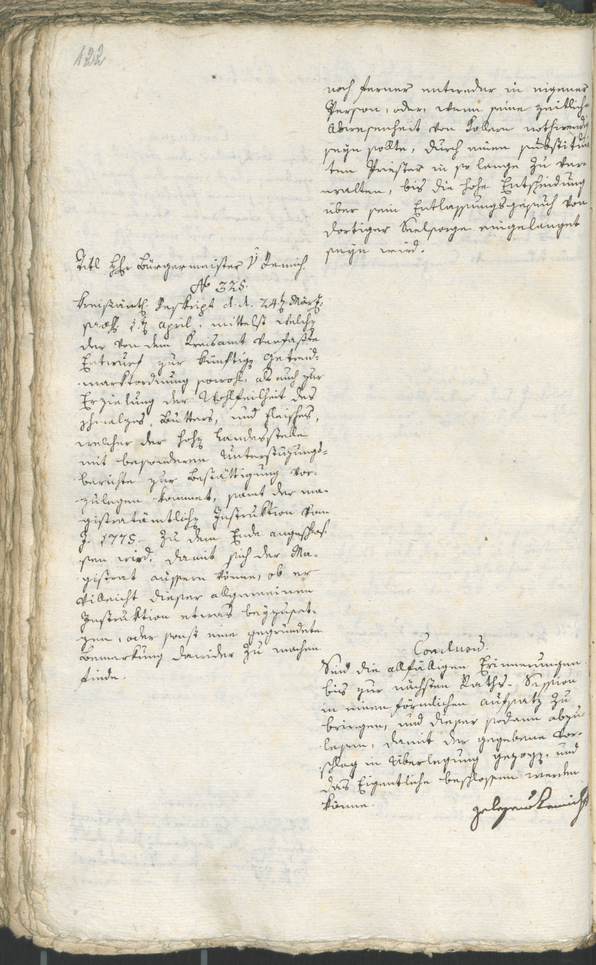 122
noch ferner entweder in eigener
Person, oder, wenn seine zeitliche
Abwesenheit von Kollern nothwendig
seyn sollte, durch einen substituir
ten Priester in so lange zu ver
walten, bis die hohe Entscheidung
über sein Entlassungsgesuch von
dortiger Seelsorge eingelanget
seyn wird.
Titl Hr Bürgermeister v Remich
No 325.
Kreisämtl. Reskript d. d. 24t März,
präs. 1t April, mittelst welch
der von dem Kreisamt verfaßte
Entwurf zur künftig Getreid-
marktordnung sowohl, als auch zur
Erzielung der Wohlfeilheit des
Schmalzes, Butters, und Fleisches,
welcher der hoh Landesstelle
mit besonderen Unterstüzungs-
berichte zur Bestättigung vor-
zulegen kommet, samt der ma-
gistratämtlich Instruktion vom
J. 1775. zu dem Ende angeschlos
sen wird, damit sich der Ma-
gistrat äussern könne, ob er
vielleicht dieser allgemeinen
Instruktion etwas beyzuset-
zen, oder sonst eine gegründete
Bemerkung darüber zu machen
finde.
Conclusum.
Sind die allfälligen Erinnerungen
bis zur nächsten Raths-Session
in einen förmlichen Aufsatz zu
bringen, und dieser sodann abzu
lesen, damit der gegebene Vor-
schlag in Überlegung gezog, und
das Eigentliche beschlossen werden
könne.
gelesen Remich